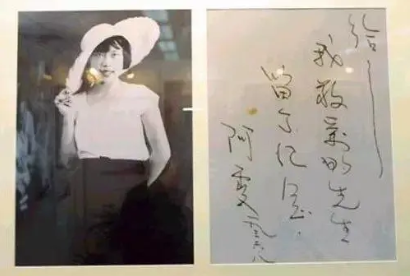 给
我敬爱的先生
留个纪念
阿